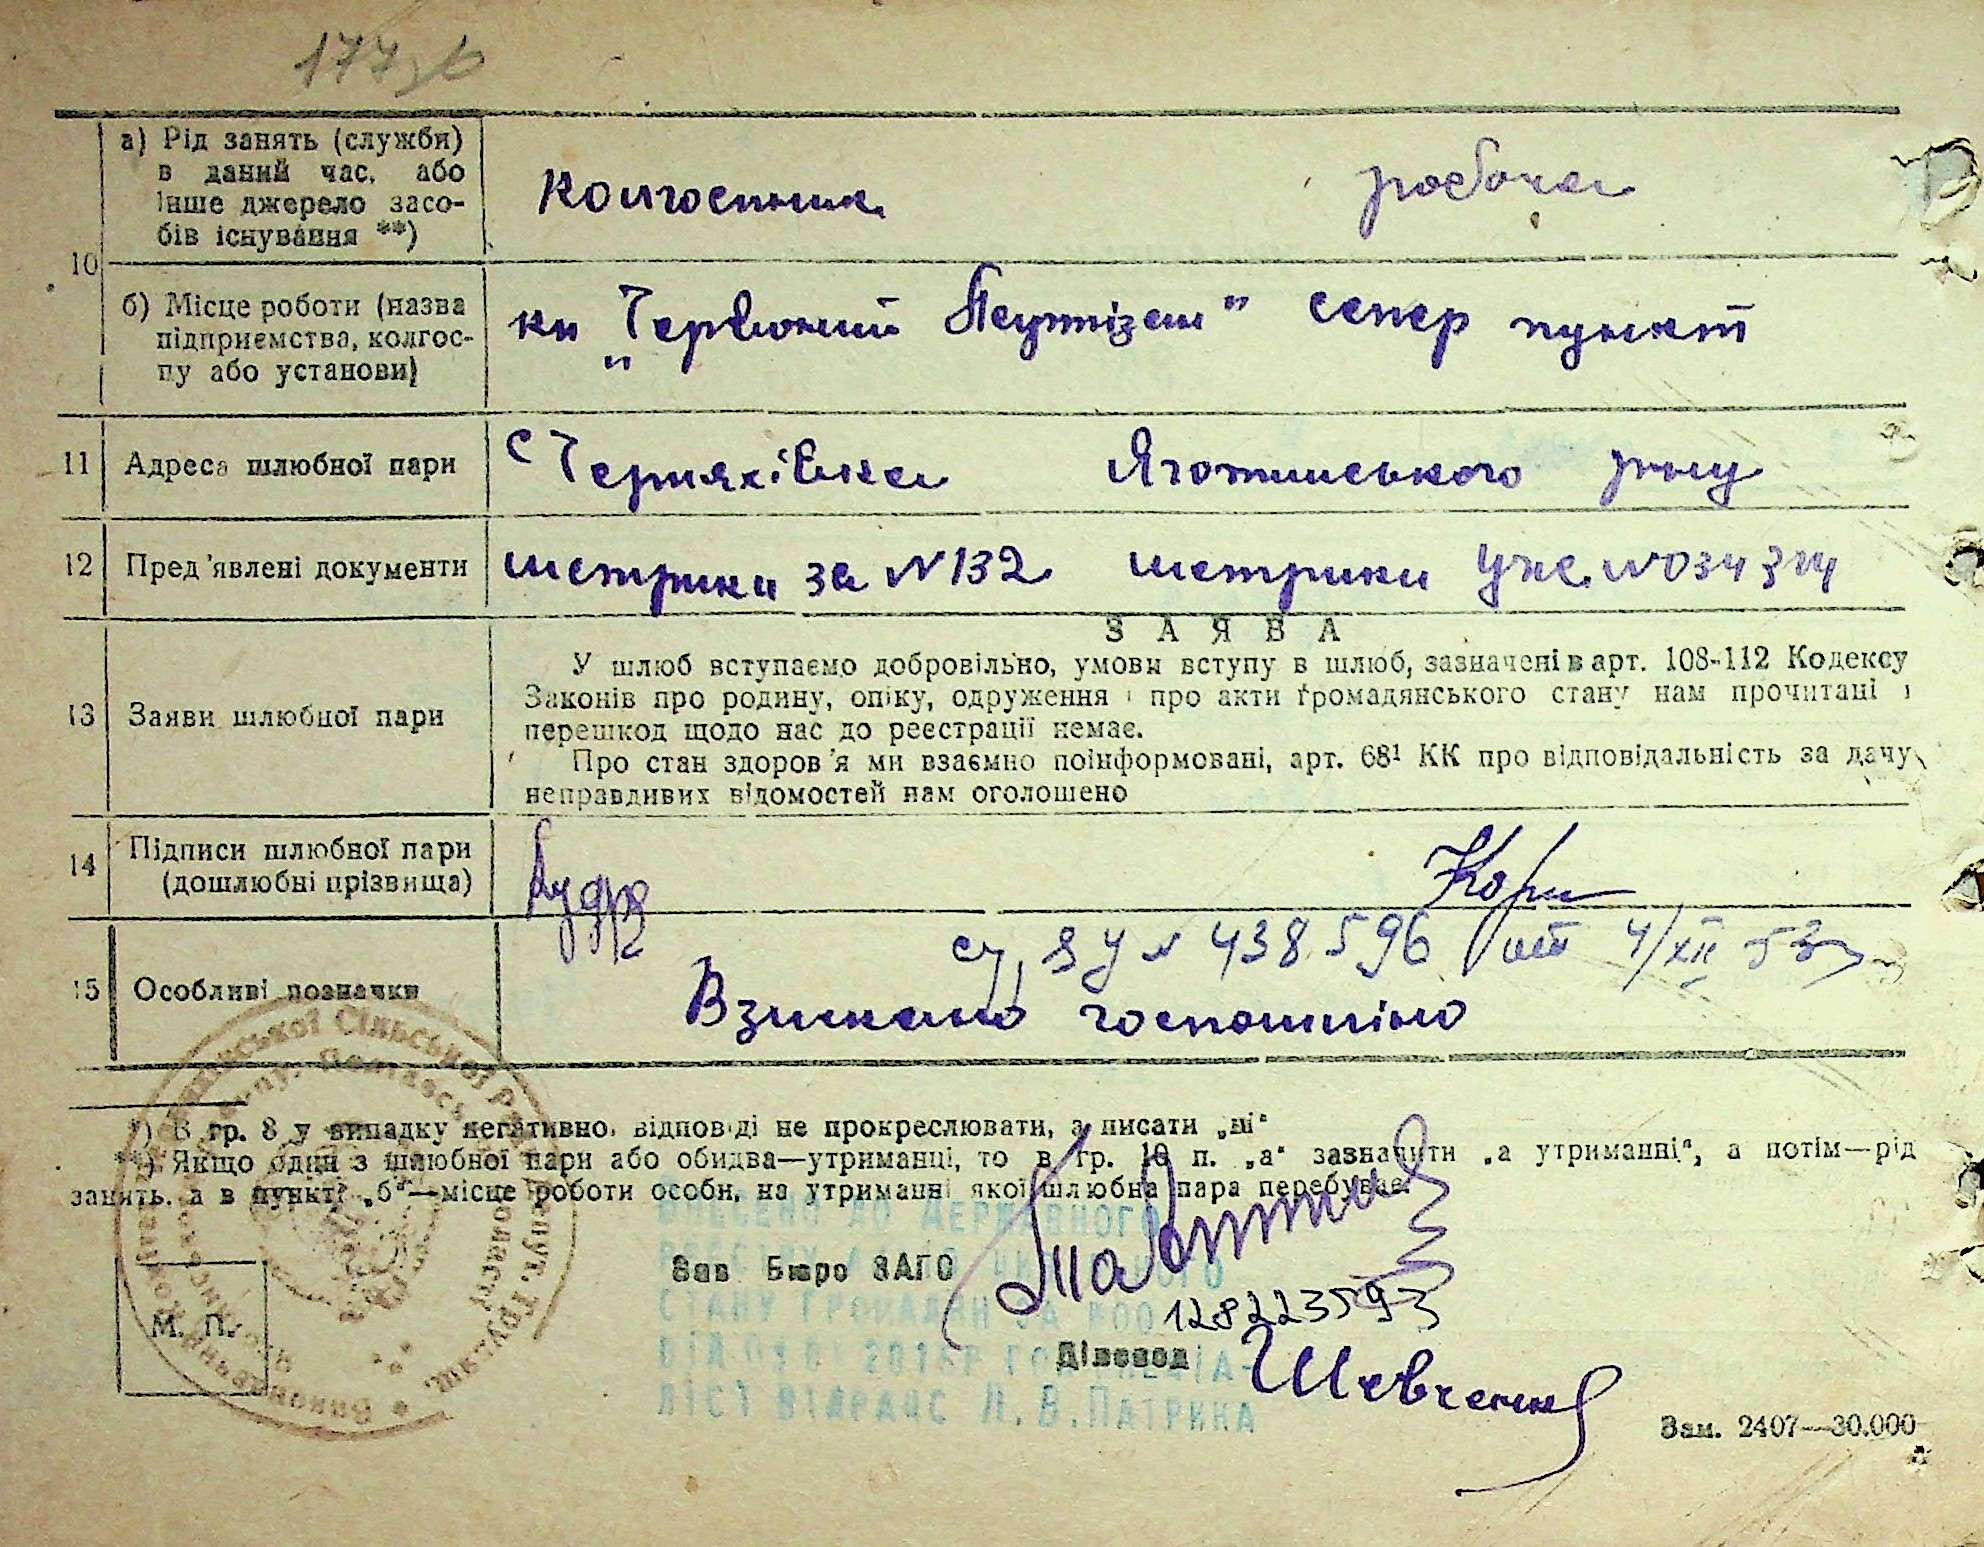 177зв
а) Рід занять (служби)
в даний час, або
інше джерело засо-
бів існування **)
колгоспник робоча
10
б) Місце роботи (назва
підприємства, колгос-
пу або установи)
кп "Червоний пункт
11 Адреса шлюбної пари с Черняхівка Яготинського р-ну
12 Пред'явлені документи метрики за №132 метрики
13 Заяви шлюбної пари
ЗАЯВА
У шлюб вступаємо добровільно, умови вступу в шлюб, зазначені в арт. 108-112 Кодексу
Законів про родину, опіку, одруження і про акти громадянського стану нам прочитані і
перешкод щодо нас до реєстрації немає.
Про стан здоров'я ми взаємно поінформовані, арт. 68¹ КК про відповідальність за дачу
неправдивих відомостей нам оголошено
14 Підписи шлюбної пари
(дошлюбні прізвища)
15 Особливі позначки
№ 438596 от 4/XII 53
Взискано
*) В гр. 8 у випадку негативної відповіді не прокреслювати, а писати „ні"
**) Якщо один з шлюбної пари або обидва—утриманці, то в гр. 10 п. „а" зазначити „а утриманні", а потім—рід
занять, а в пункті „б"—місце роботи особи, на утриманні якої шлюбна пара перебуває.
ВНЕСЕНО ДО ДЕРЖАВНОГО
Зав Бюро ЗАГС
СТАНУ ГРОМАДЯН ЗА №00
128223593
М. П.
Діловод Шевченко
ЛІСТ ВІДРАЦС Н.В.ПАТРИНА
Зам. 2407—30.000